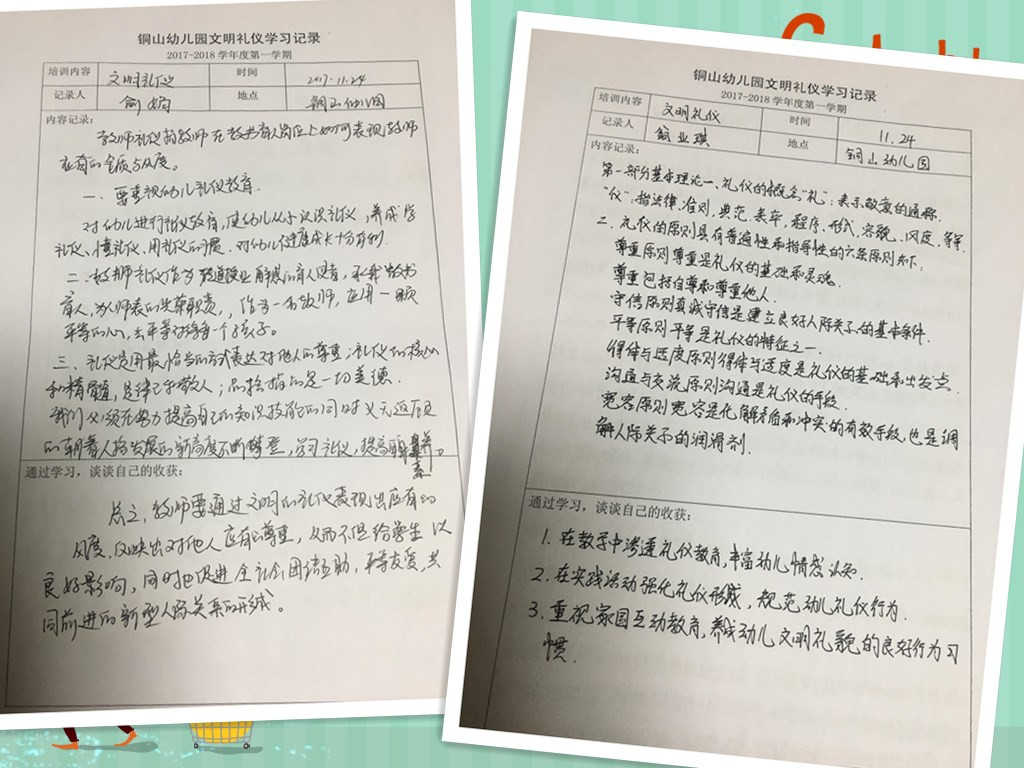 铜山幼儿园文明礼仪学习记录
2017-2018 学年度第一学期
培训内容 文明礼仪 时间 2017.11.24
记录人 地点 铜山幼儿园
内容记录:
教师礼仪指教师在教书育人岗位上如何表现教师
应有的气质与风度。
一、要重视幼儿礼仪教育.
对幼儿进行礼仪教育,使幼儿从小认识礼仪,养成学
礼仪、懂礼仪、用礼仪的习惯.对幼儿健康成长十分有利.
二、教师礼仪作为 的育人使者,承载教书
育人,为人师表的光荣职责,作为一名教师,应用一颗
平等的心,去平等对待每个孩子。
三、礼仪是用最恰当的方式表达对他人的尊重;礼仪的核心
和精髓,是律己和敬人;品格指的是一切美德.
我们必须在努力提高自己的知识技能的同时义无返顾
的朝着人格发展的新高度不断攀登,学习礼仪,提高 素养。
通过学习,谈谈自己的收获:
总之,教师要通过文明的礼仪表现出应有的
风度,反映出对他人应有的尊重,从而不但给学生以
良好影响,同时也促进全社会团结互助、平等友爱、共
同前进的新型人际关系的形成。
铜山幼儿园文明礼仪学习记录
2017-2018 学年度第一学期
培训内容 文明礼仪 时间 11.24
记录人 业琪 地点 铜山幼儿园
内容记录:
第一部分基本理论一、礼仪的概念"礼":表示敬意的通称.
"仪":指法律、准则、典范、表率、程序、形式、容貌、风度、等等.
二、礼仪的原则具有普遍性和指导性的六条原则如下:
尊重原则尊重是礼仪的基础和灵魂.
尊重包括自尊和尊重他人.
守信原则真诚守信是建立良好人际关系的基本条件.
平等原则平等是礼仪的特征之一.
得体与适度原则得体与适度是礼仪的基础和出发点.
沟通与交流原则沟通是礼仪的手段.
宽容原则宽容是化解矛盾和冲突的有效手段,也是调
解人际关系的润滑剂.
通过学习,谈谈自己的收获:
1. 在教学中渗透礼仪教育,丰富幼儿情感认知.
2. 在实践活动强化礼仪形成,规范幼儿礼仪行为.
3. 重视家园互动教育,养成幼儿文明礼貌的良好行为习
惯.